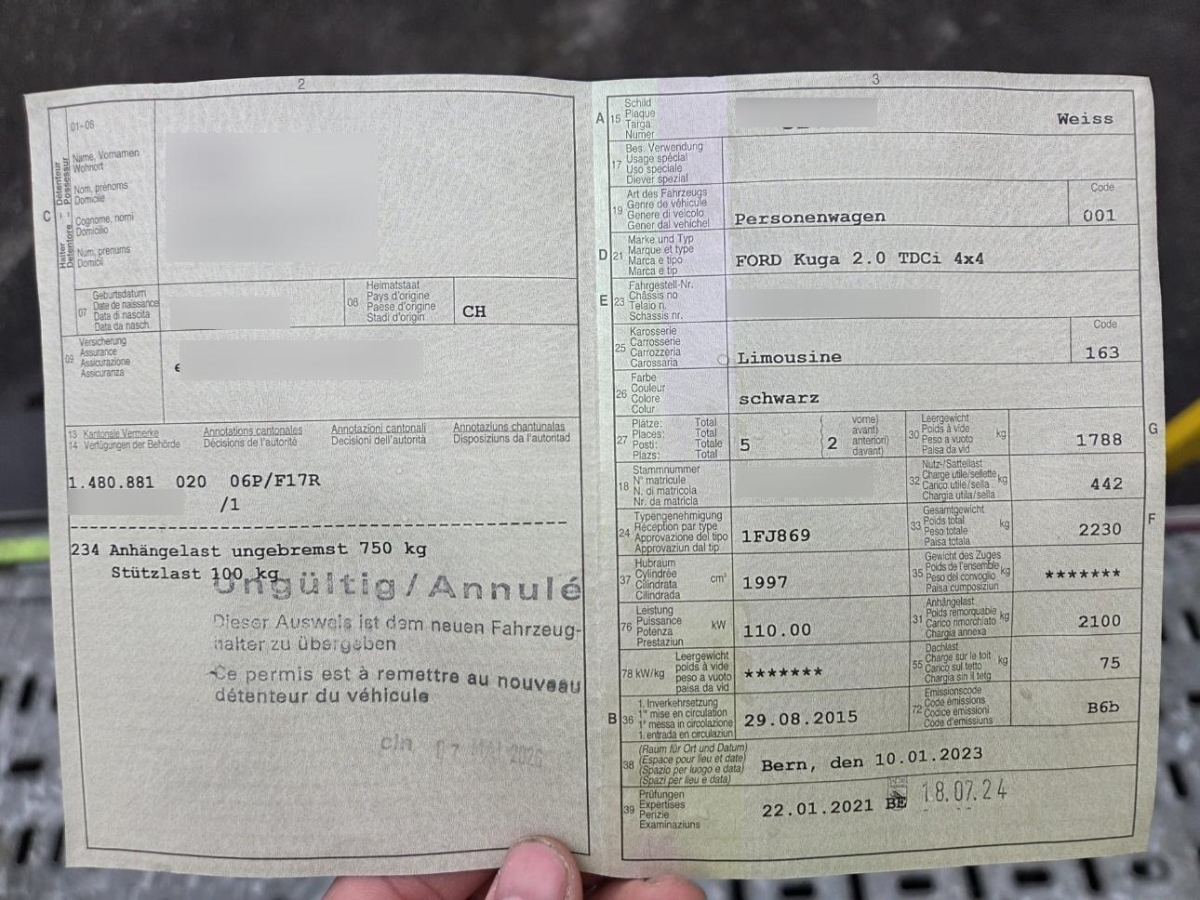 2
01-06
C
Halter
Détenteur
Detentore
Possessur
Name, Vornamen
Wohnort
Nom, prénoms
Domicile
Cognome, nomi
Domicilio
Num, prenums
Domicil
07
Geburtsdatum
Date de naissance
Data di nascita
Data da nasch.
08
Heimatstaat
Pays d'origine
Paese d'origine
Stadi d'origin
CH
09
Versicherung
Assurance
Assicurazione
Assicuranza
13 Kantonale Vermerke Annotations cantonales Annotazioni cantonali Annotaziuns chantunalas
14 Verfügungen der Behörde Décisions de l'autorité Decisioni dell'autorità Disposiziuns da l'autoritad
1.480.881 020 06P/F17R
/1
234 Anhängelast ungebremst 750 kg
Stützlast 100 kg
Ungültig/Annulé
Dieser Ausweis ist dem neuen Fahrzeug-
halter zu übergeben
Ce permis est à remettre au nouveau
détenteur du véhicule
3
A 15
Schild
Plaque
Targa
Numer
Weiss
17
Bes. Verwendung
Usage spécial
Uso speciale
Diever spezial
19
Art des Fahrzeugs
Genre de véhicule
Genere di veicolo
Gener dal vehichel
Personenwagen
Code
001
D 21
Marke und Typ
Marque et type
Marca e tipo
Marca e tip
FORD Kuga 2.0 TDCi 4x4
E 23
Fahrgestell-Nr.
Châssis no
Telaio n.
Schassis nr.
25
Karosserie
Carrosserie
Carrozzeria
Carossaria
Limousine
Code
163
26
Farbe
Couleur
Colore
Colur
schwarz
27
Plätze: Total
Places: Total
Posti: Totale
Plazs: Total
5
2
vorne)
avant)
anteriori)
davant)
30
Leergewicht
Poids à vide
Peso a vuoto
Paisa da vid
kg
1788
G
18
Stammnummer
N° matricule
N. di matricola
Nr. da matricla
32
Nutz-/Sattellast
Charge utile/sellette
Carico utile/sella
Chargia utila/sella
kg
442
24
Typengenehmigung
Réception par type
Approvazione del tipo
Approvaziun dal tip
1FJ869
33
Gesamtgewicht
Poids total
Peso totale
Paisa totala
kg
2230
F
37
Hubraum
Cylindrée
Cilindrata
Cilindrada
cm³
1997
35
Gewicht des Zuges
Poids de l'ensemble
Peso del convoglio
Paisa cumposiziun
kg
*******
76
Leistung
Puissance
Potenza
Prestaziun
kW
110.00
31
Anhängelast
Poids remorquable
Carico rimorchiato
Chargia annexa
kg
2100
78 kW/kg
Leergewicht
poids à vide
peso a vuoto
paisa da vid
*******
55
Dachlast
Charge sur le toit
Carico sul tetto
Chargia sin il tetg
kg
75
B 36
1. Inverkehrsetzung
1re mise en circulation
1a messa in circolazione
1. entrada en circulaziun
29.08.2015
72
Emissionscode
Code émissions
Codice emissioni
Code d'emissiuns
B6b
38
(Raum für Ort und Datum)
(Espace pour lieu et date)
(Spazio per luogo e data)
(Spazi per lieu e data)
Bern, den 10.01.2023
39
Prüfungen
Expertises
Perizie
Examinaziuns
22.01.2021 BE 18.07.24